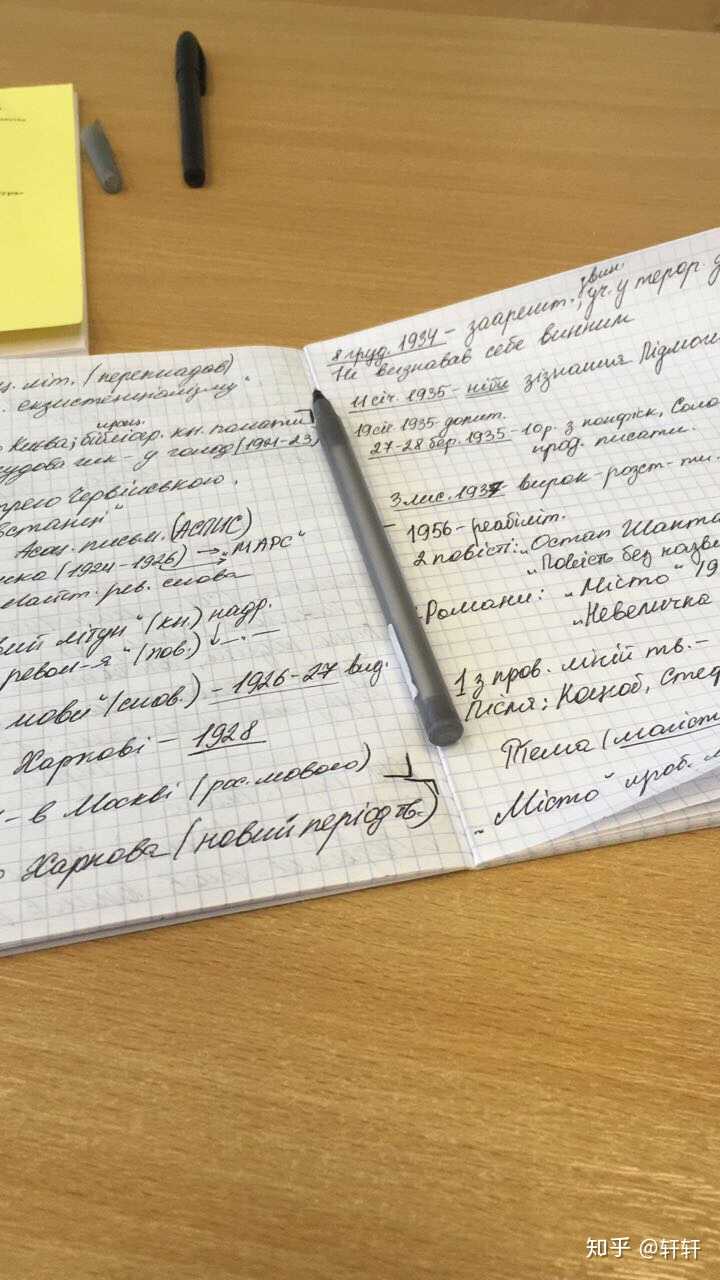 ц. літ. (перекладав)
екзистенціалізму.
Києва; бібліогр. кн. палати
праці
у голод (1921-23)
Червінською.
повстанці"
Асоц. письм. (АСПИС)
(1924-1926) → „МАРС"
Майст. рев. слова
літун" (кн) надр.
(пов.)
мови" (слов.) - 1926-27 вид.
Харкові - 1928
- в Москві (рос. мовою)
Харкова (новий період тв.)
8 груд 1934 - заарешт., уч. у терор.
звин.
Не визнавав себе винним
11 січ. 1935 - ніби зізнання Підмог
19 січ 1935 - допит.
27-28 бер. 1935 - 10 р. з конфіск, Соло
прод. писати.
3 лис. 1937 - вирок - розст -
1956 - реабіліт.
2 повісті: „Остап Шапта
„Повість без назв
Романи: „Місто" 19
„Невеличка
1 з пров. ліній тв. -
Після: Коцюб, Стеф
Тема (
„Місто" проб.
知乎 @轩轩